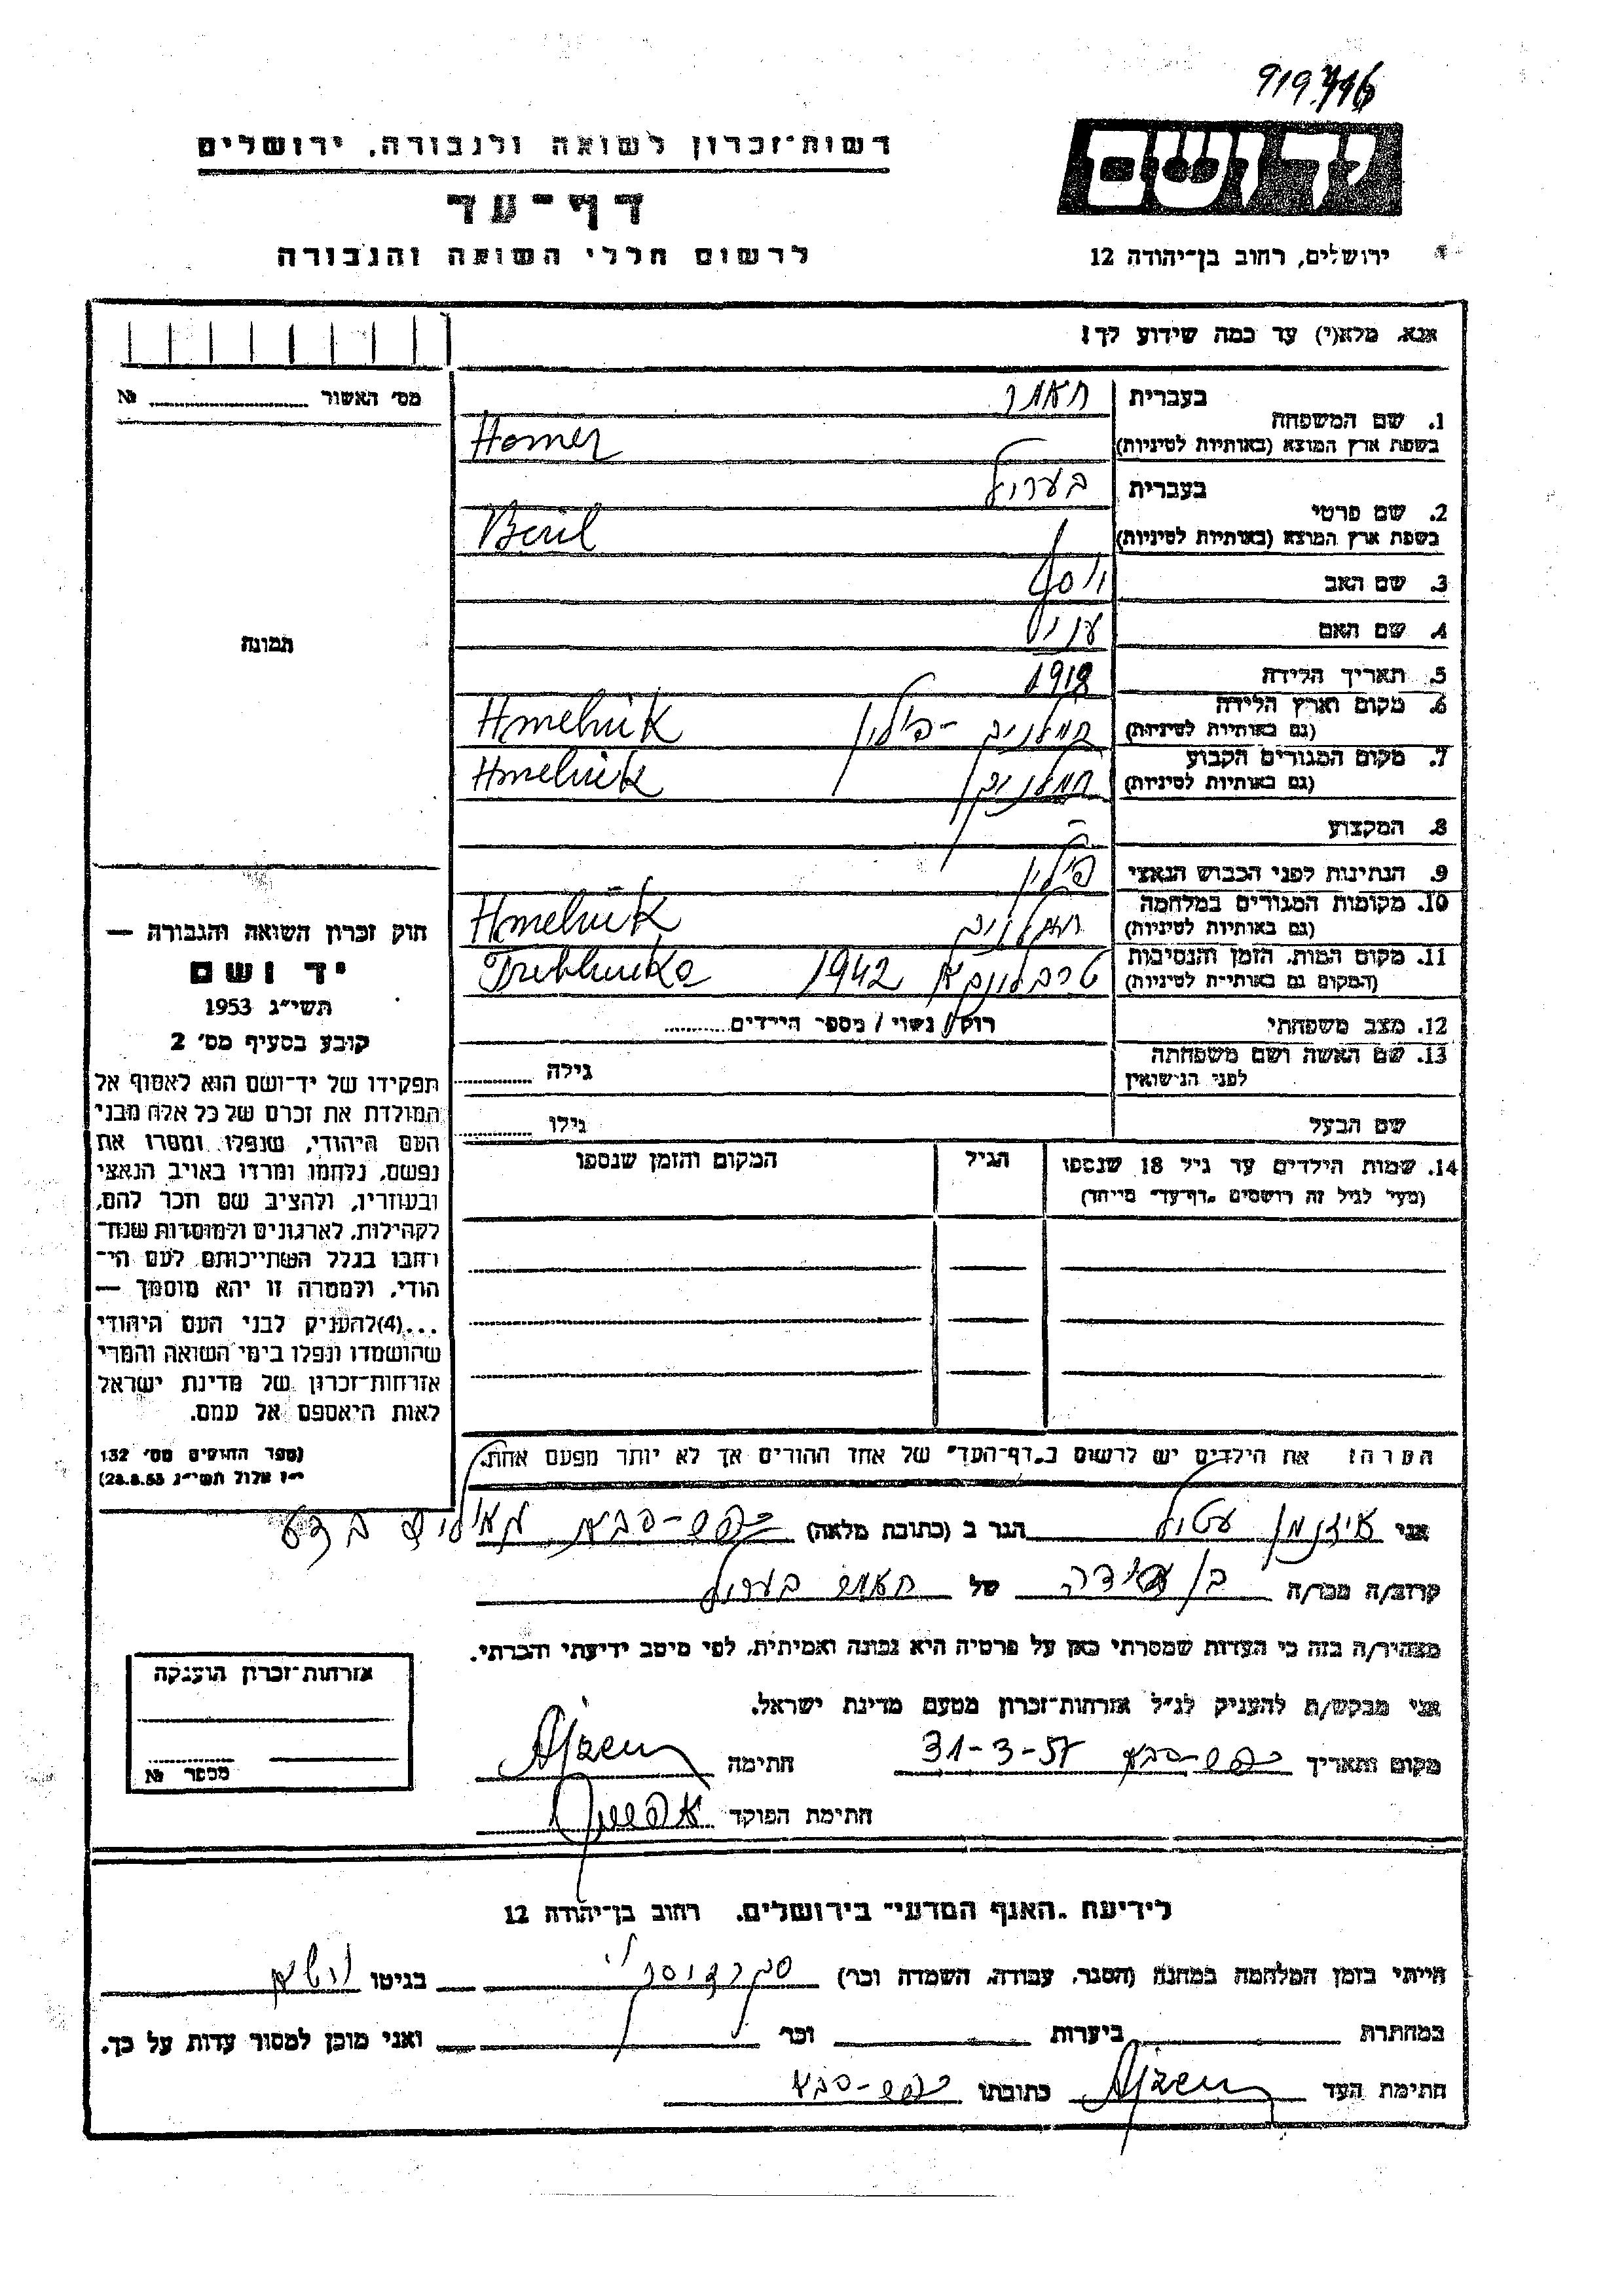 919 446
רשות-זכרון לשואה ולגבורה, ירושלים
יד ושם
דף-עד
לרשום חללי השואה והגבורה
ירושלים, רחוב בן-יהודה 12
אנא, מלא(י) עד כמה שידוע לך!
מס' האשור № 
1. שם המשפחה בעברית חאמר
בשפת ארץ המוצא (באותיות לטיניות) Homer
2. שם פרטי בעברית בערול
בשפת ארץ המוצא (באותיות לטיניות) Beril
3. שם האב יוסף
4. שם האם
5. תאריך הלידה 1918
6. מקום וארץ הלידה (גם באותיות לטיניות) חמלניק - פולין Hmelnik
7. מקום המגורים הקבוע (גם באותיות לטיניות) חמלניק Hmelnik
8. המקצוע
9. הנתינות לפני הכבוש הנאצי פולין
10. מקומות המגורים במלחמה (גם באותיות לטיניות) חמלניק Hmelnik
11. מקום המות, הזמן והנסיבות (המקום גם באותיות לטיניות) טרבלינקא 1942 Treblinka
12. מצב משפחתי רוק / נשוי / מספר הילדים
13. שם האשה ושם משפחתה לפני הנישואין גילה
שם הבעל גילו
14. שמות הילדים עד גיל 18 שנספו הגיל המקום והזמן שנספו
(מעל לגיל זה רושמים "דף-עד" מיוחד)
תמונה
חוק זכרון השואה והגבורה —
יד ושם
תשי"ג 1953
קובע בסעיף מס' 2
תפקידו של יד-ושם הוא לאסוף אל
המולדת את זכרם של כל אלה מבני
העם היהודי, שנפלו ומסרו את
נפשם, נלחמו ומרדו באויב הנאצי
ובעוזריו, ולהציב שם וזכר להם,
לקהילות, לארגונים ולמוסדות שנח-
רבו בגלל השתייכותם לעם הי-
הודי, ולמטרה זו יהא מוסמך —
...(4) להעניק לבני העם היהודי
שהושמדו ונפלו בימי השואה והמרי
אזרחות-זכרון של מדינת ישראל
לאות היאספם אל עמם.
(ספר החוקים מס' 132
י"ז אלול תשי"ג 28.8.53)
הערה: את הילדים יש לרשום ב"דף-העד" של אחד ההורים אך לא יותר מפעם אחת.
אני אייזנמן הגר ב (כתובת מלאה) כפר-סבא
קרוב/ה מכר/ה בן דודה של חאמר בערול
מצהיר/ה בזה כי העדות שמסרתי כאן על פרטיה היא נכונה ואמיתית, לפי מיטב ידיעתי והכרתי.
אני מבקש/ת להעניק לנ"ל אזרחות-זכרון מטעם מדינת ישראל.
מקום ותאריך כפר-סבא 31-3-57 חתימה
חתימת הפוקד
אזרחות-זכרון הוענקה
מספר №
לידיעת "האגף המדעי" בירושלים, רחוב בן-יהודה 12
הייתי בזמן המלחמה במחנה (הסגר, עבודה, השמדה וכו') בגיטו
במחתרת ביערות וכו' ואני מוכן למסור עדות על כך.
חתימת העד כתובתו כפר-סבא